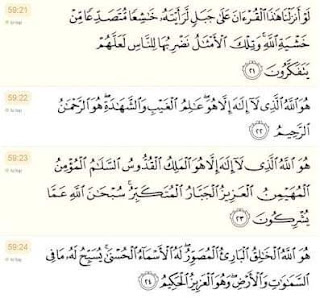 59:21
لَوْ أَنزَلْنَا هَٰذَا الْقُرْءَانَ عَلَىٰ جَبَلٍ لَّرَأَيْتَهُۥ خَٰشِعًا مُّتَصَدِّعًا مِّنْ
خَشْيَةِ اللَّهِ ۚ وَتِلْكَ الْأَمْثَٰلُ نَضْرِبُهَا لِلنَّاسِ لَعَلَّهُمْ
يَتَفَكَّرُونَ ٢١
59:22
هُوَ اللَّهُ الَّذِى لَآ إِلَٰهَ إِلَّا هُوَ ۖ عَٰلِمُ الْغَيْبِ وَالشَّهَٰدَةِ ۖ هُوَ الرَّحْمَٰنُ
الرَّحِيمُ ٢٢
59:23
هُوَ اللَّهُ الَّذِى لَآ إِلَٰهَ إِلَّا هُوَ الْمَلِكُ الْقُدُّوسُ السَّلَٰمُ الْمُؤْمِنُ
الْمُهَيْمِنُ الْعَزِيزُ الْجَبَّارُ الْمُتَكَبِّرُ ۚ سُبْحَٰنَ اللَّهِ عَمَّا
يُشْرِكُونَ ٢٣
59:24
هُوَ اللَّهُ الْخَٰلِقُ الْبَارِئُ الْمُصَوِّرُ ۖ لَهُ الْأَسْمَآءُ الْحُسْنَىٰ ۚ يُسَبِّحُ لَهُۥ مَا فِى
السَّمَٰوَٰتِ وَالْأَرْضِ ۖ وَهُوَ الْعَزِيزُ الْحَكِيمُ ٢٤